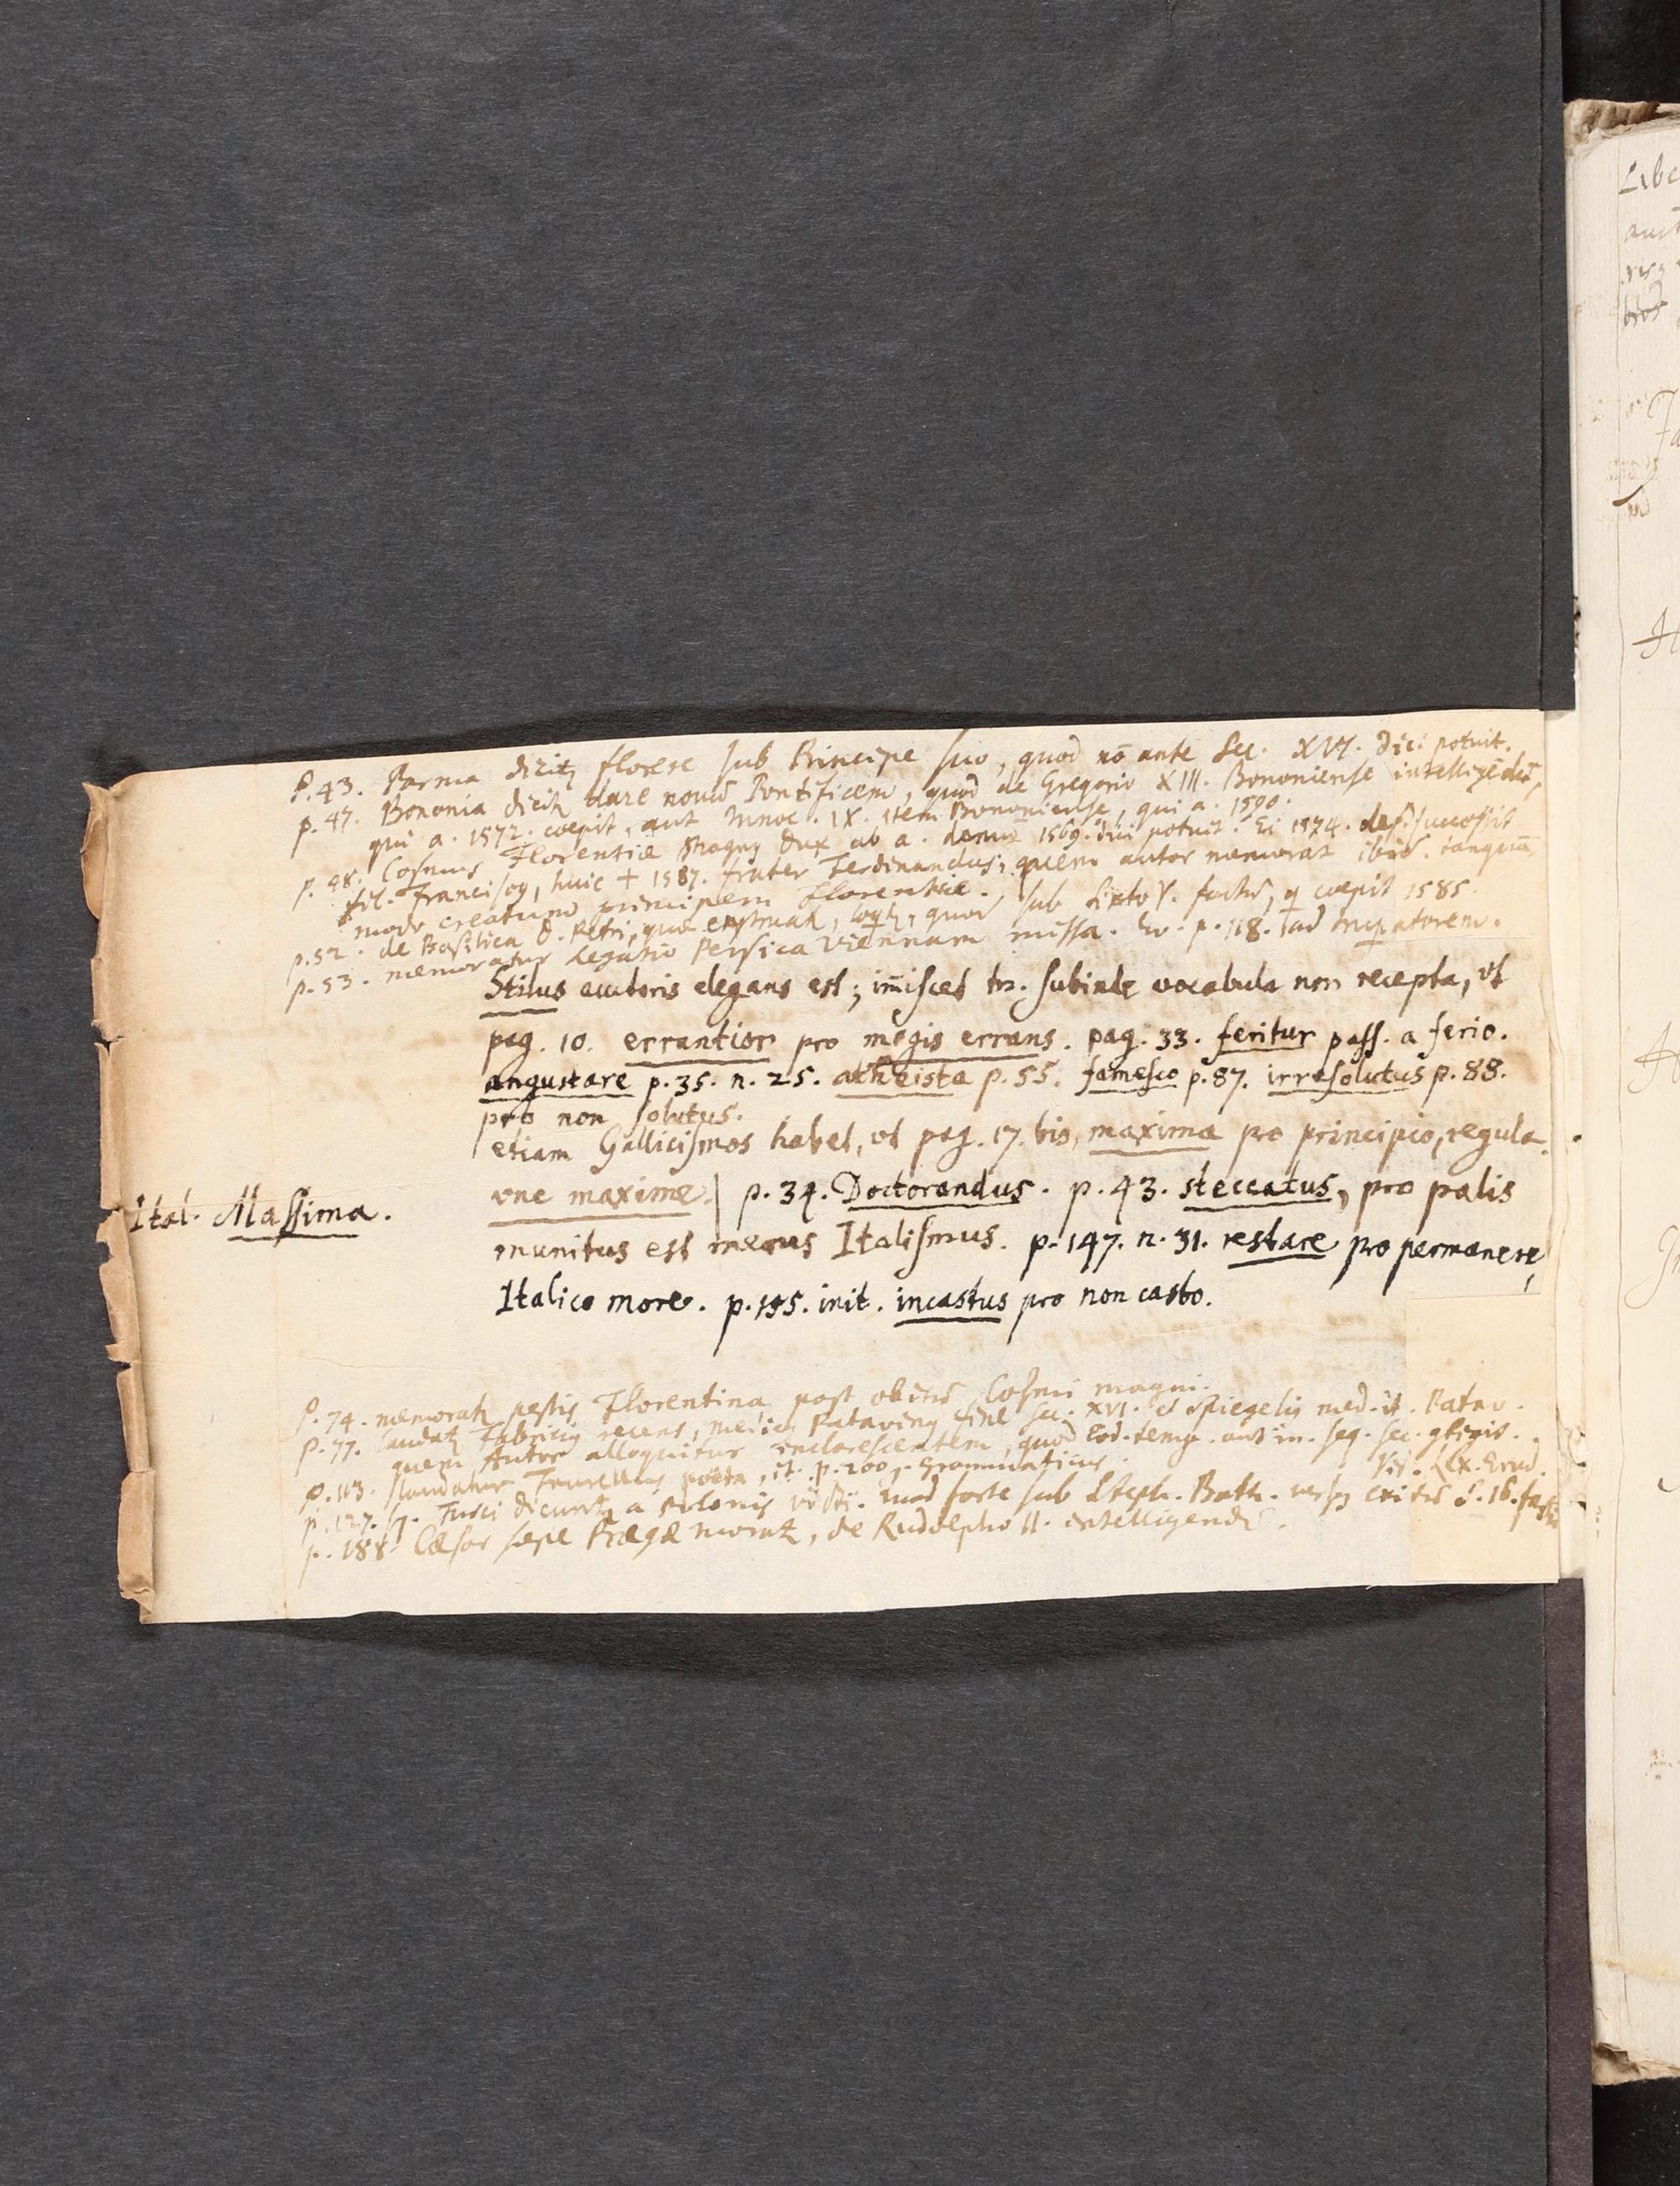 P. 43. Parma dicit florere sub Principe suo, quod nō ante Sec. XVI. dici potuit.
p. 47. Bononia dicit dare novū Pontificem, quod de Gregorio XIII. Bononiense intelligēdū,
qui a. 1572. coepit, aut Innoc. IX. item Bononiense, qui a. 1590.
p. 48. Cosmus Florentiæ Magnus Dux ab a. demū 1569. dici potuit. Ei 1574. def. successit
fil. Franciscus, huic + 1587. frater Ferdinandus, quem autor memorat ibid. tanquā
modo creatum principem Florentiæ.
p. 52. de Basilica D. Petri, quæ exstruat, loqt, quod sub Sixto V. factū, q coepit 1585.
p. 53. memoratur Legatio Persica Viennam missa. p. 118. ad Imperatorem.
Stilus auctoris elegans est; im̄iscet tn. subinde vocabula non recepta, vt
pag. 10. errantior pro magis errans. pag. 33. feritur pass. a ferio.
angustare p. 35. n. 25. atheista p. 55. famesco p. 87. irresolutus p. 88.
pro non solutus.
etiam Gallicismos habet, vt pag. 17. bis, maxima pro principio, regula
Ital. Massima.
vne maxime. p. 34. Doctorandus. p. 43. steccatus, pro palis
munitus est merus Italismus. p. 147. n. 31. restare pro permanere,
Italico more. p. 195. init. incastus pro non casto.
P. 74. memorat pestis Florentina post obitū Cosmi magni.
p. 77. laudat Fabricius recens, medicus Patavinus fine sec. XVI. Spiegelius med. it. Patav.
quem Autor alloquitur inclarescentem, quod eod. temp. aut in. seq. sec.
p. 113. laudatur poëta, it. p. 200. Grammaticus.
Vid. Lex. Erud.
p. 127. Tusci dicunt a Polonis victi. quod forte sub Steph. Bath. versus exitū S. 16. factū
p. 188. Cæsar sæpe Pragæ morat, de Rudolpho II. intelligendū.
Libe